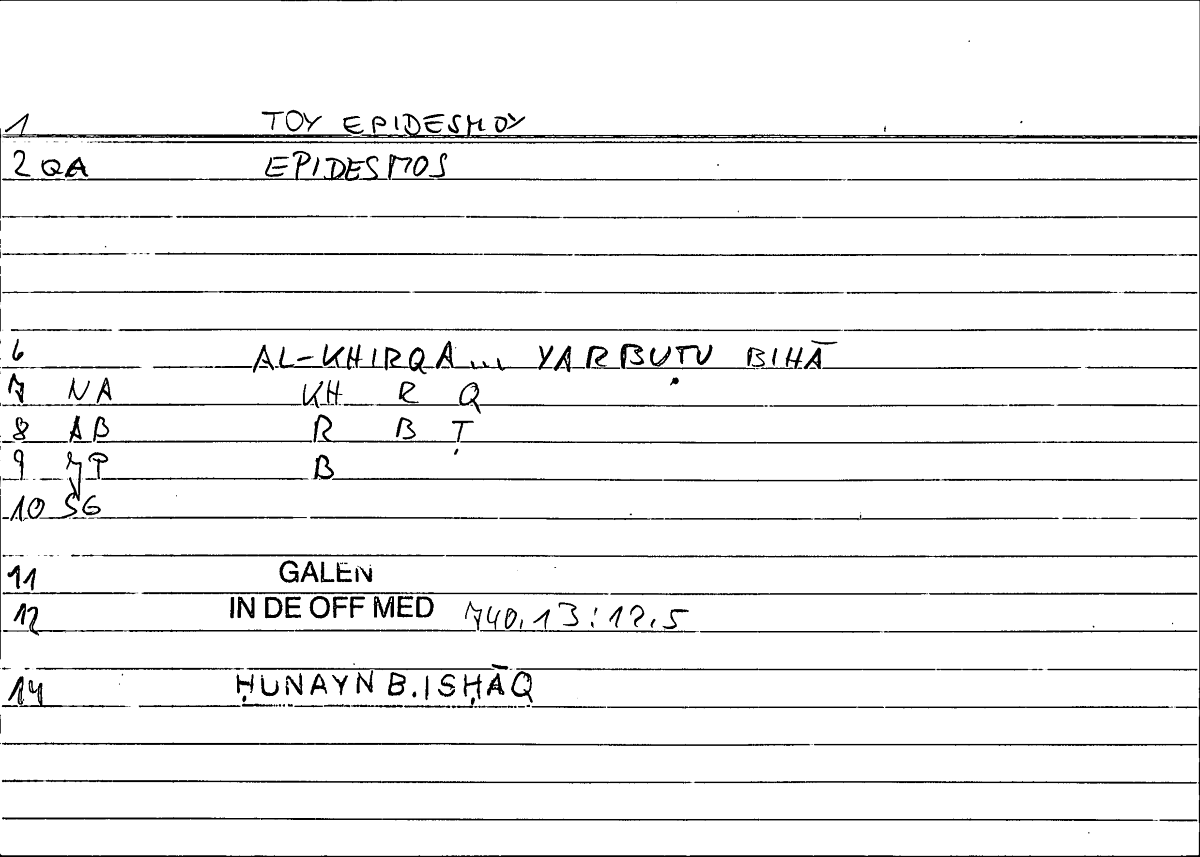 1 TOY EPIDESMOY
2 QA EPIDESMOS
6 AL-KHIRQA... YARBUṬU BIHĀ
7 NA KH R Q
8 AB R B Ṭ
9 JP B
10 SG
11 GALEN
12 IN DE OFF MED 740,13:12,5
14 ḤUNAYN B. ISḤĀQ